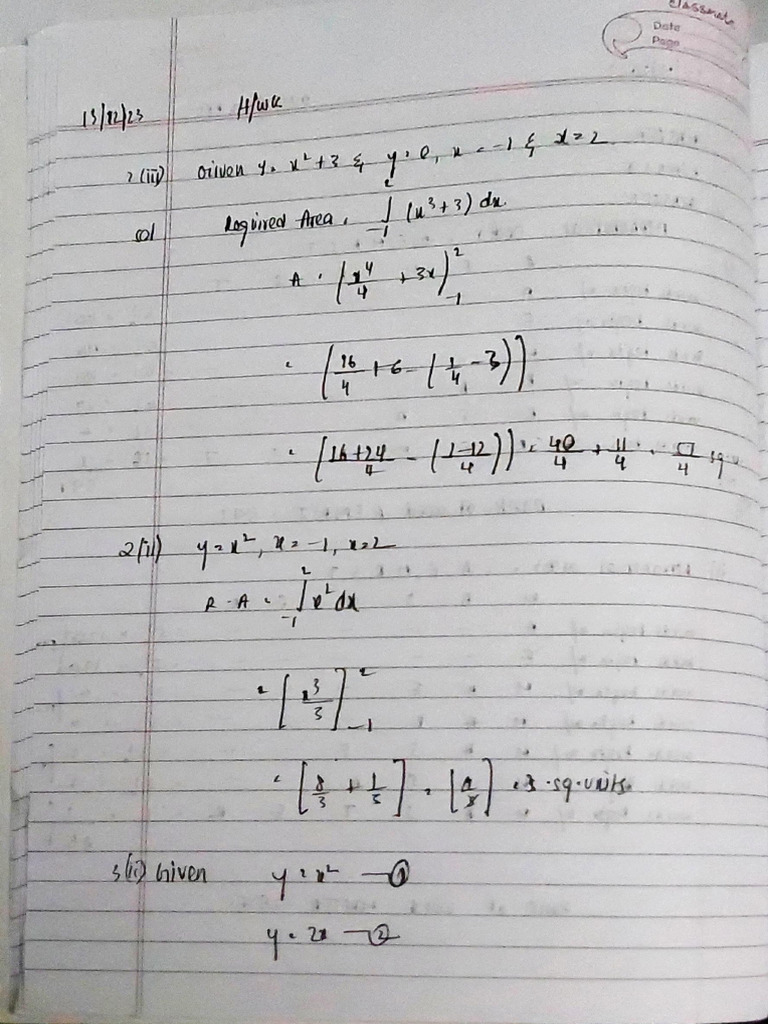 classmate
Date
Page
13/12/23 H/wk
2(iii) Given y = x² + 3 & y = 0, x = -1 & x = 2
sol Required Area = ∫₋₁² (x³ + 3) dx
A = (x⁴/4 + 3x)₋₁²
= (16/4 + 6 - (1/4 - 3))
= (16+24/4 - (1-12/4)) = 40/4 + 11/4 = 51/4 sq.u
2(ii) y = x², x = -1, x = 2
R.A = ∫₋₁² x² dx
= [x³/3]₋₁²
= [8/3 + 1/3] = [9/3] = 3 sq.units
3(ii) Given y = x² —①
y = 2x —②